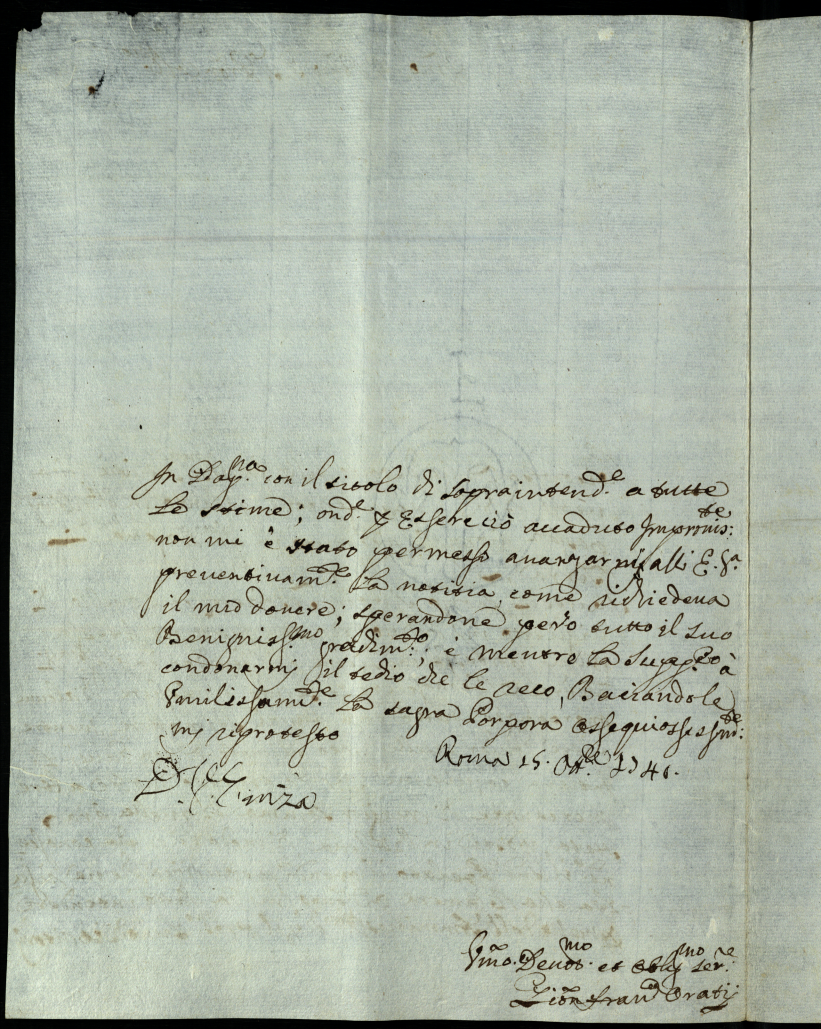 In Dog.na con il titolo di sopraintend.e a tutte
le stime; ond.e p esser ciò accaduto Improvis:te
non mi è stato permesso avanzarnj alli E. V.a
preventivam.te la notitia, come richiedeva
il mio dovere; sperandone però tutto il suo
Benigniss.mo gradim.to; è mentro la supp.co à
condonarmj il tedio che le reco, Baciandole
Vmilissam.te la sagra Porpora ossequiosissim:te
mj riprotesto
Roma 15. Ott.bre 1741.
D. V. Eminza
Vmo. Devot.mo et Oblig.mo ser.re
Gion Fran.co Oratij